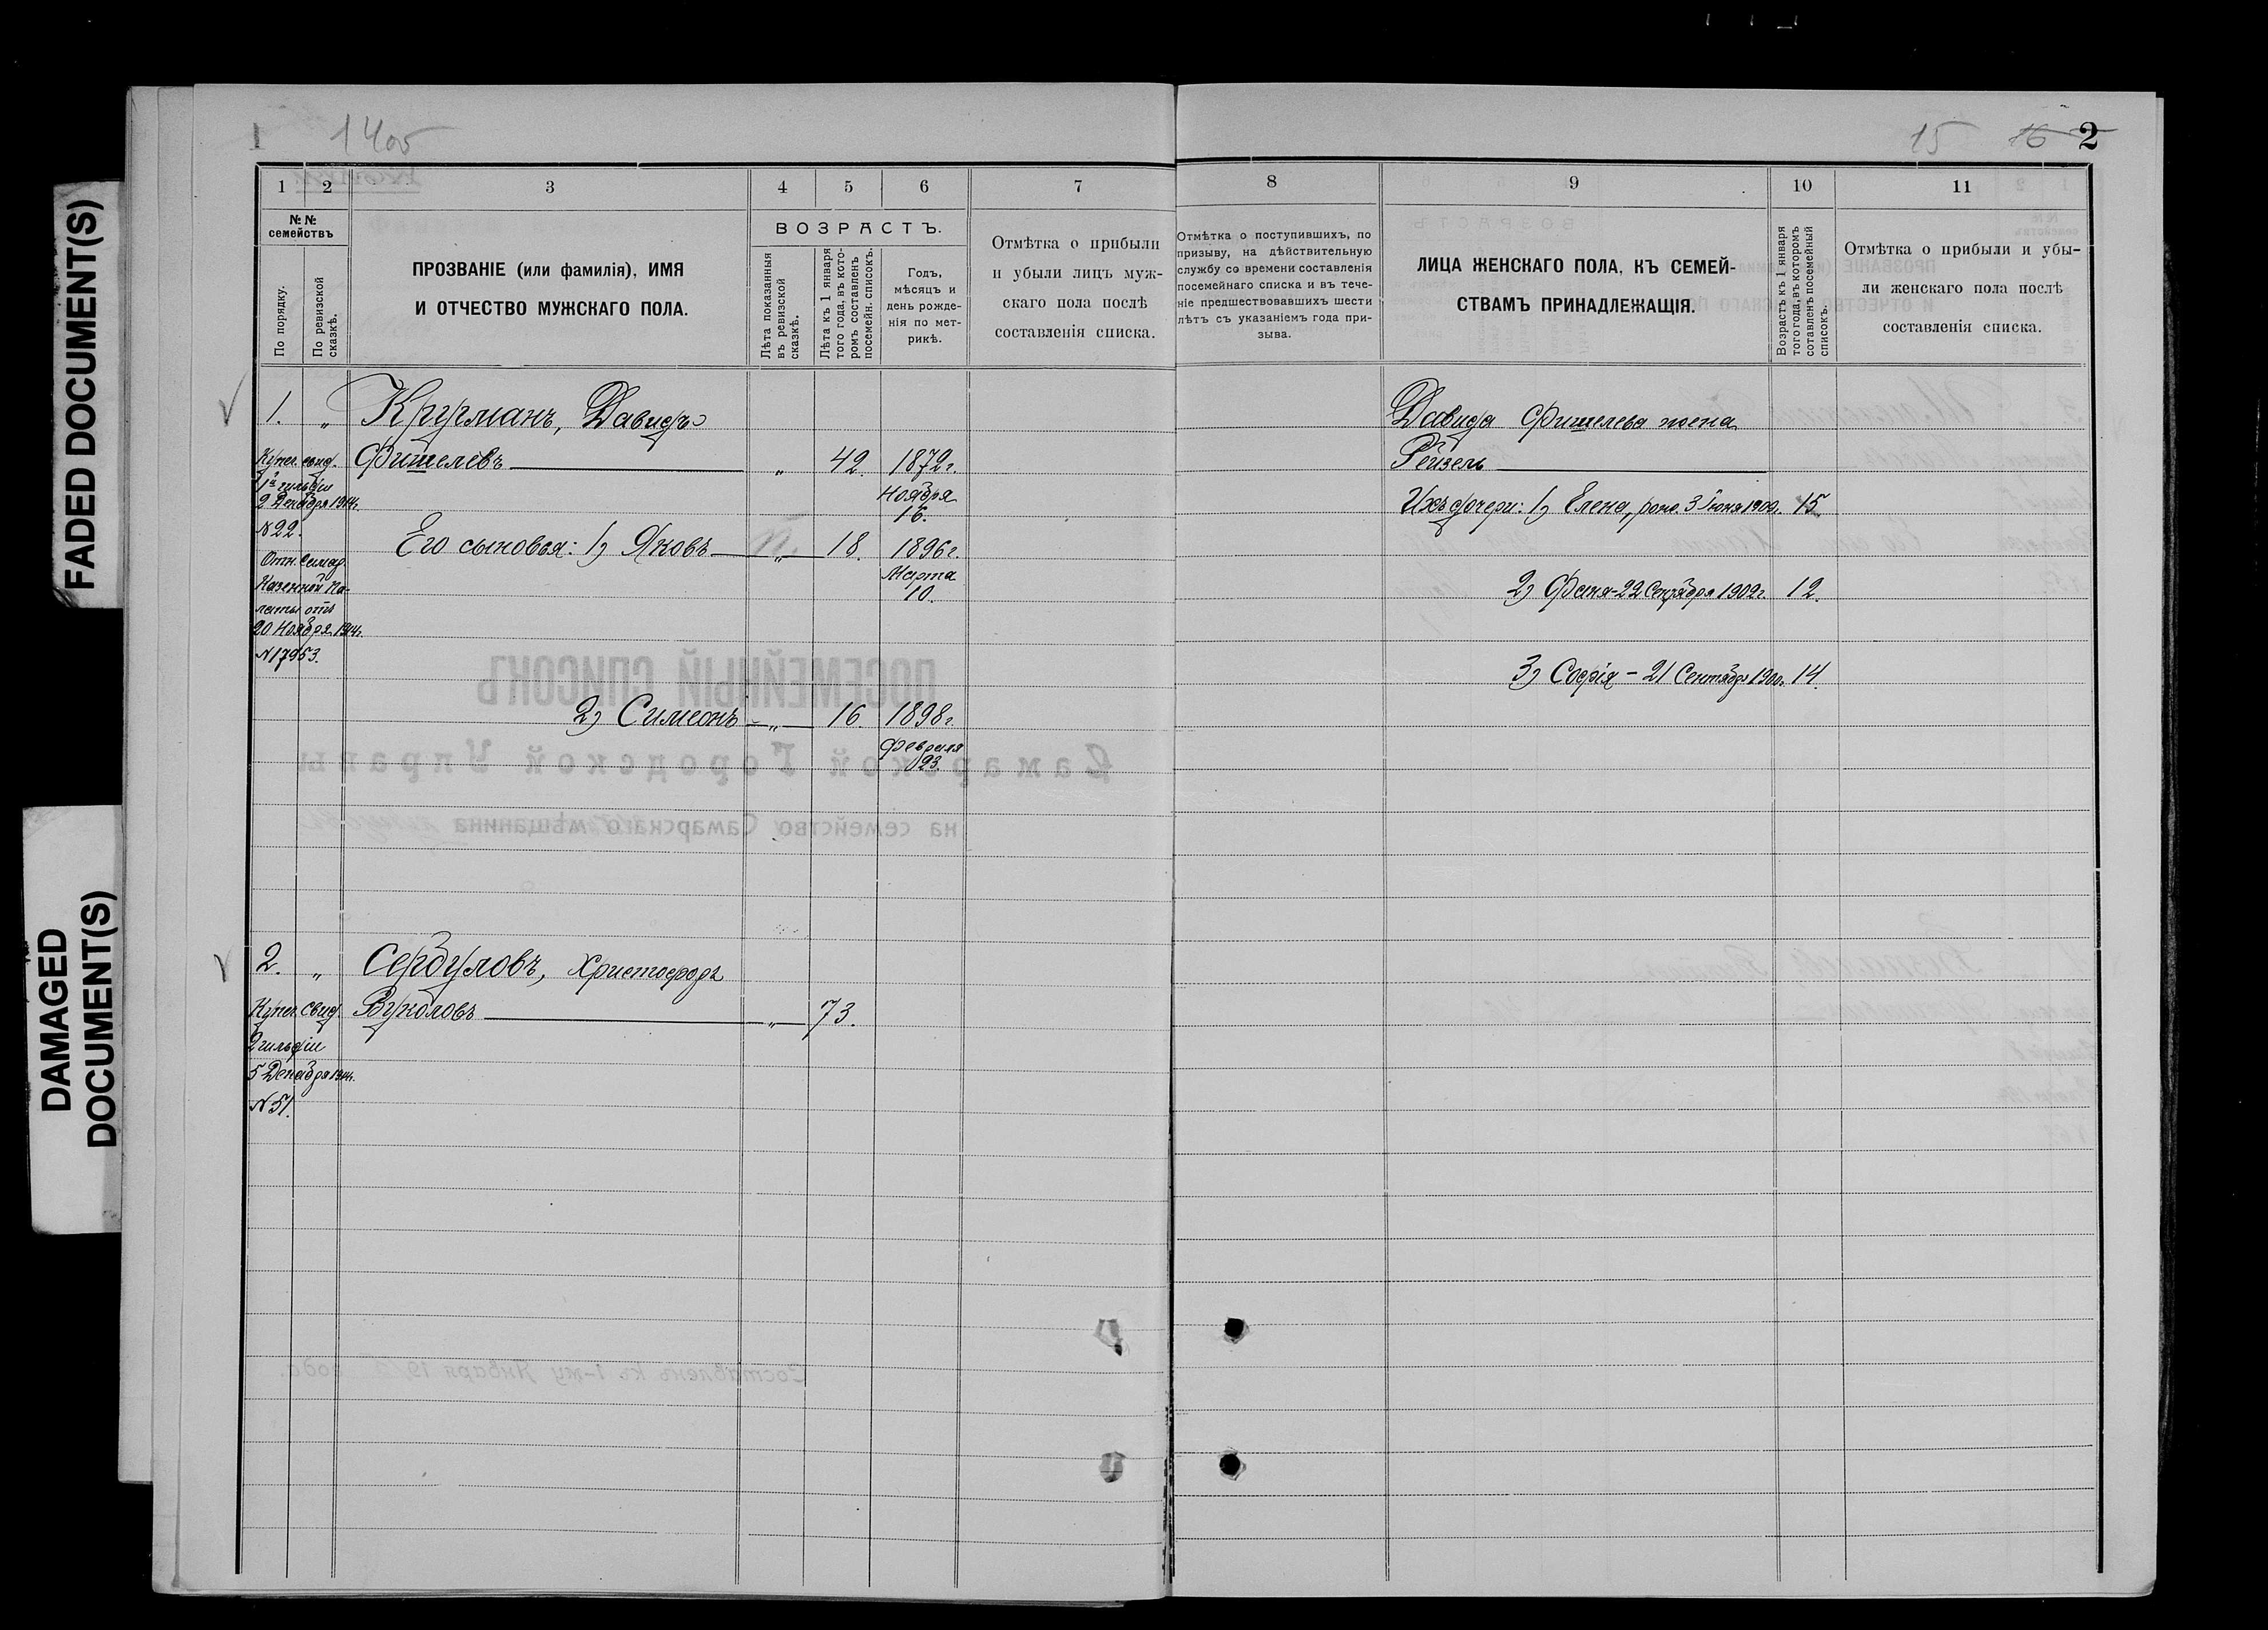 FADED DOCUMENT(S)
DAMAGED
DOCUMENT(S)
1405
15 16 2
1 2 3 4 5 6 7 8 9 10 11
№ №
семействъ
По порядку.
По ревизской
сказкѣ.
ПРОЗВАНІЕ (или фамилія), ИМЯ
И ОТЧЕСТВО МУЖСКАГО ПОЛА.
ВОЗРАСТЪ.
Лѣта показанныя
въ ревизской
сказкѣ.
Лѣта къ 1 января
того года, въ кото-
ромъ составленъ
посемейн. списокъ.
Годъ,
мѣсяцъ и
день рожде-
нія по мет-
рикѣ.
Отмѣтка о прибыли
и убыли лицъ муж-
скаго пола послѣ
составленія списка.
Отмѣтка о поступившихъ, по
призыву, на дѣйствительную
службу со времени составленія
посемейнаго списка и въ тече-
ніе предшествовавшихъ шести
лѣтъ съ указаніемъ года при-
зыва.
ЛИЦА ЖЕНСКАГО ПОЛА, КЪ СЕМЕЙ-
СТВАМЪ ПРИНАДЛЕЖАЩІЯ.
Возрастъ къ 1 января
того года, въ которомъ
соталенъ посемейный
списокъ.
Отмѣтка о прибыли и убы-
ли женскаго пола послѣ
составленія списка.
1. „ Кругманъ, Давидъ
Фишелевъ „ 42 1872г.
Ноября
16.
Купеч. свид.
1й гильдіи
2 Декабря 1914г.
N 22.
Отн. Самар.
Казенной Па-
латы отъ
20 Ноября 1914г.
N 17953.
Его сыновья: 1) Яковъ „ 18. 1896г.
Марта
10.
2) Симеонъ „ 16. 1898г.
Февраля
23.
Давида Фишелева жена
Рейзель
Ихъ дочери: 1) Елена, рожд. 3 Іюня 1900. 15.
2) Фаня-22 Сентября 1902г. 12.
3) Софія - 21 Сентября 1900г. 14.
2. „ Сердуловъ, Христофоръ
Вуколовъ „ 73.
Купеч. свид.
2 гильдіи
5 Декабря 1914г.
N 51.
ПОСЕМЕЙНЫЙ СПИСОКЪ
Самарской Городской Управы
на семейство Самарскаго мѣщанина
Составленъ къ 1-му Января 19 года.